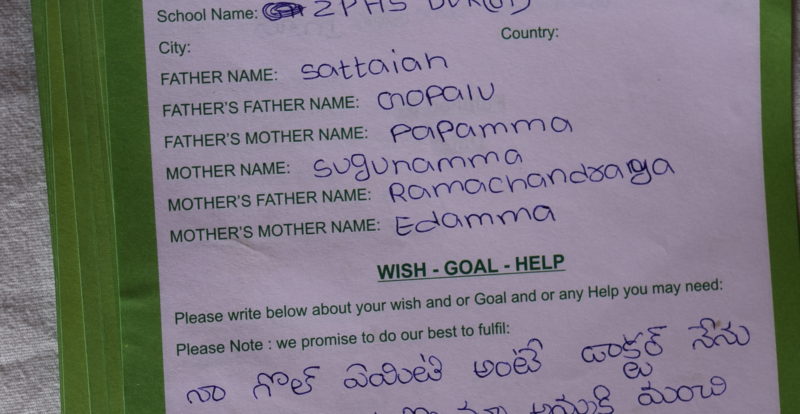 School Name: ZPHS DVK(U)
City: Country:
FATHER NAME: Sattaiah
FATHER'S FATHER NAME: Gopalu
FATHER'S MOTHER NAME: Papamma
MOTHER NAME: Sugunamma
MOTHER'S FATHER NAME: Ramachandraya
MOTHER'S MOTHER NAME: Edamma
WISH - GOAL - HELP
Please write below about your wish and or Goal and or any Help you may need:
Please Note : we promise to do our best to fulfil:
నా గోల్ ఏమిటి అంటే డాక్టర్ నేను
మంచి